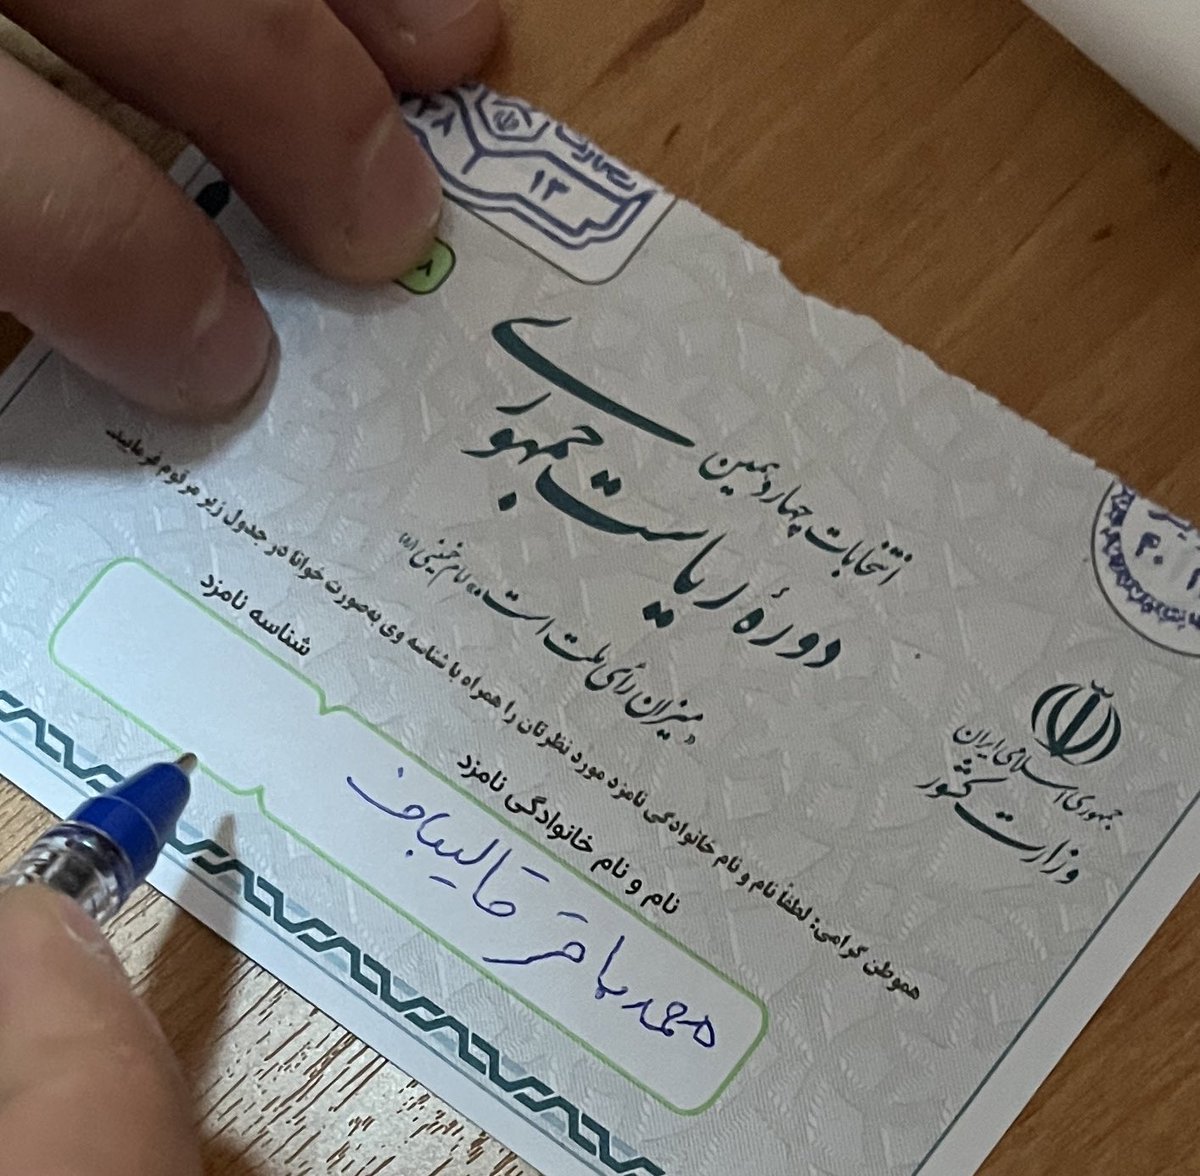 ۱۳
۸
انتخابات چهاردهمین
دورهٔ ریاست جمهوری
«میزان رأی ملت است.» امام خمینی (ره)
جمهوری اسلامی ایران
وزارت کشور
هموطن گرامی؛ لطفاً نام و نام خانوادگی نامزد مورد نظرتان را همراه با شناسه وی به‌صورت خوانا در جدول زیر مرقوم فرمایید.
نام و نام خانوادگی نامزد
شناسه نامزد
محمد باقر قالیباف